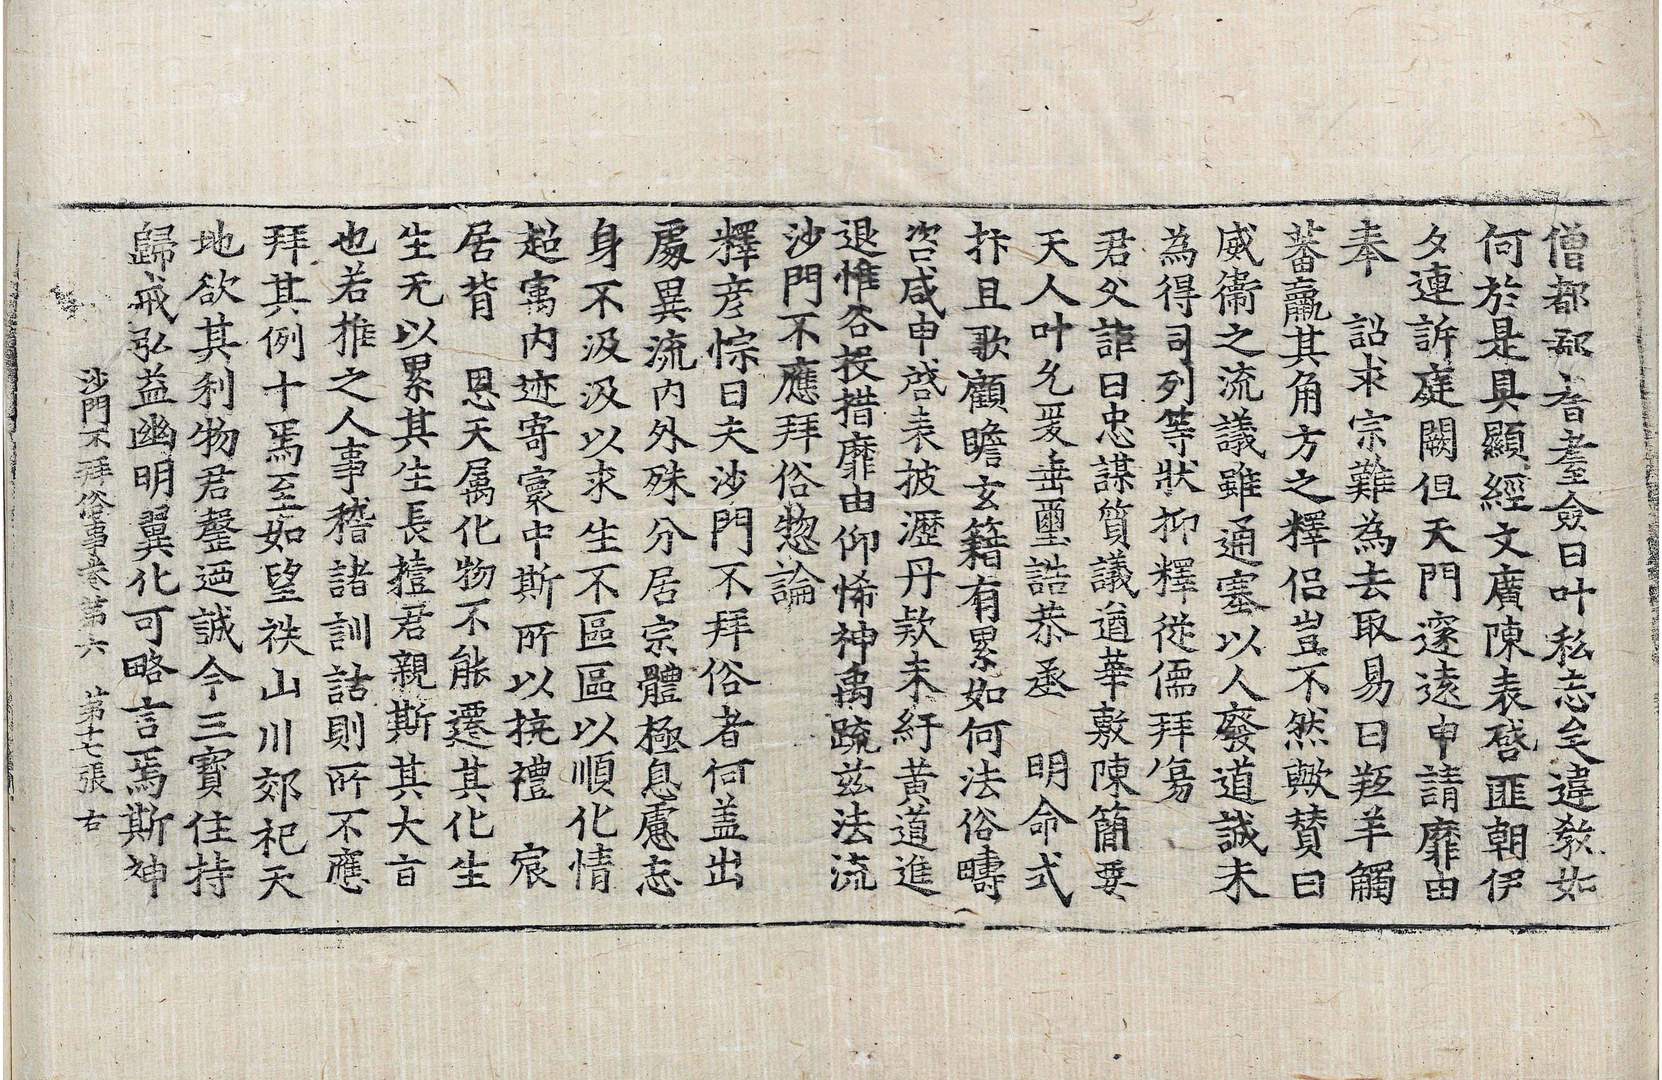 僧都鄙耆耋僉曰叶私志全違教如
何於是具顯經文廣陳表啓匪朝伊
夕連訴庭闕但天門邃遠申請靡由
奉　詔求宗難為去取易曰羝羊觸
蕃羸其角方之釋侶豈不然歟贊曰
威衛之流議雖通塞以人廢道誠未
為得司列等狀抑釋從儒拜傷
君父詎曰忠謀質議遒華敷陳簡要
天人叶允爰垂璽誥恭承　明命式
抃且歌顧瞻玄籍有累如何法俗疇
咨咸申啓表披瀝丹欵未紆黃道進
退惟谷投措靡由仰悕神禹疏茲法流
沙門不應拜俗惣論
釋彦悰曰夫沙門不拜俗者何蓋出
處異流內外殊分居宗體極息慮忘
身不汲汲以求生不區區以順化情
超寓內迹寄寰中斯所以抗禮　宸
居背　恩天属化物不能遷其化生
生无以累其生長揖君親斯其大旨
也若推之人事稽諸訓詁則所不應
拜其例十焉至如望秩山川郊祀天
地欲其利物君罄迺誠今三寶住持
歸戒弘益幽明翼化可略言焉斯神
沙門不拜俗事卷第六　第十七張　右